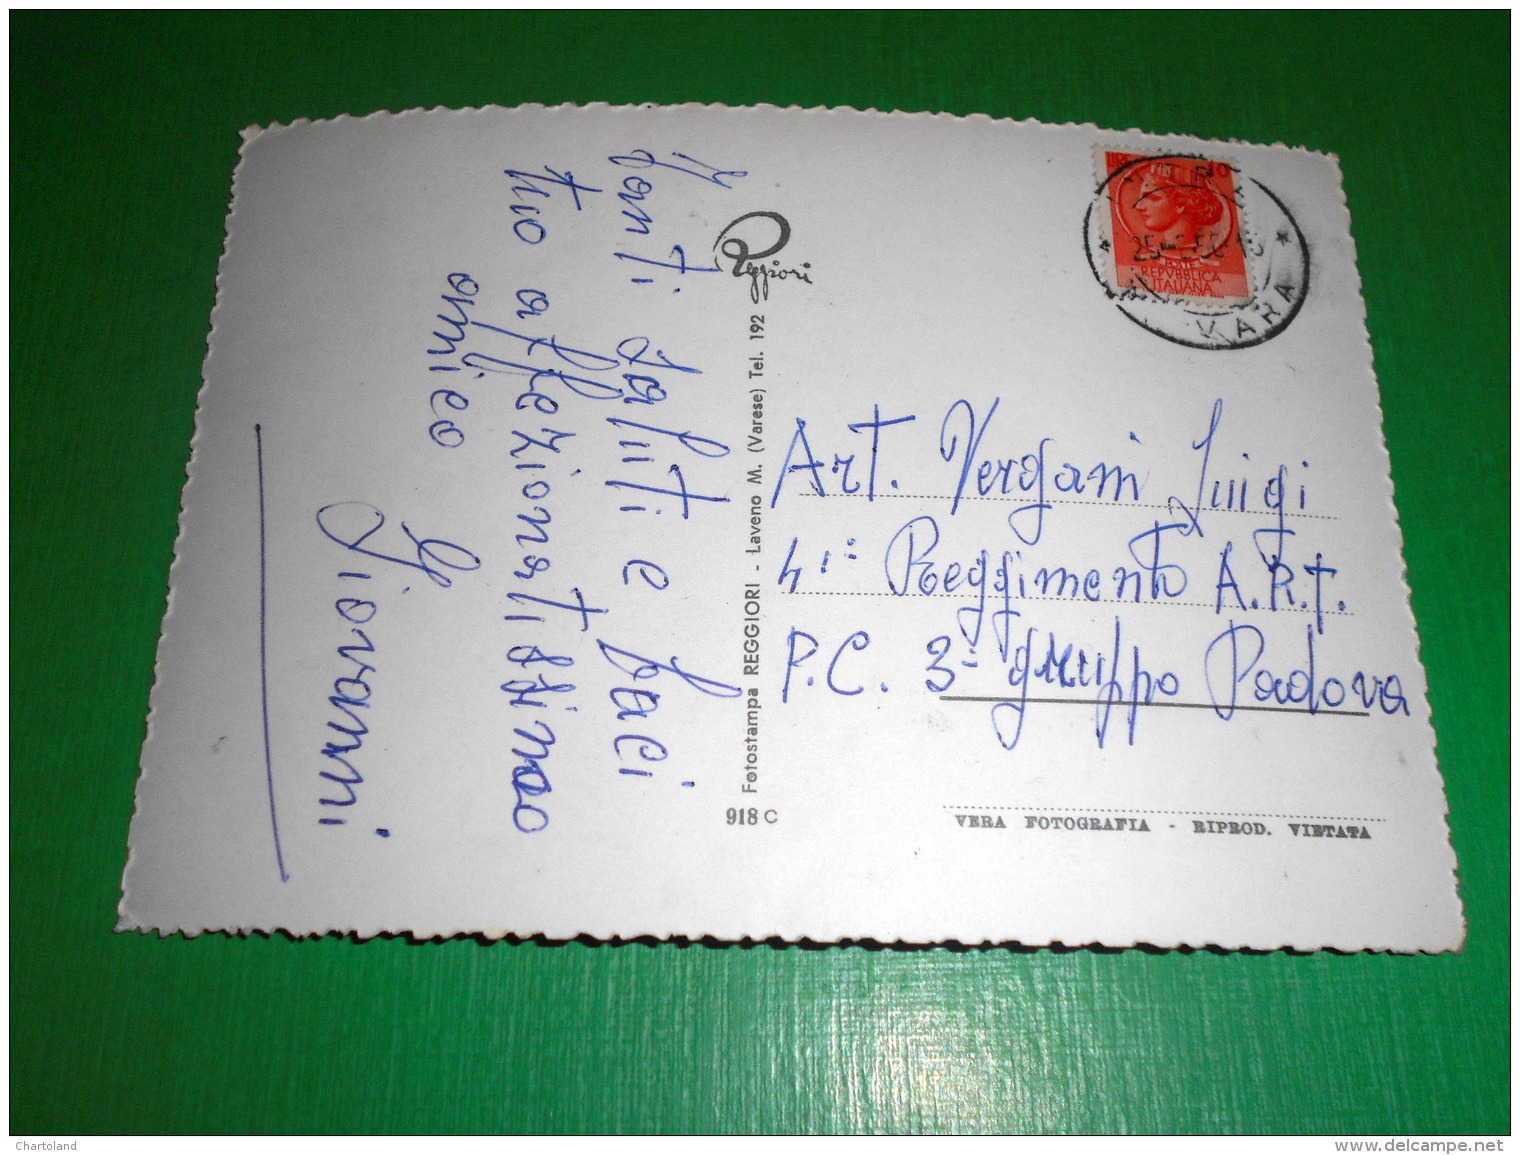 Tanti saluti e baci
tuo affezionatissimo
amico
Giovanni
Reggiori
Fotostampa REGGIORI - Laveno M. (Varese) Tel. 192
918 C
LIRE
POSTE
REPVBBLICA
ITALIANA
Art. Vergani Luigi
4º Reggimento A.R.T.
P.C. 3º gruppo Padova
VERA FOTOGRAFIA - RIPROD. VIETATA
Chartoland
www.delcampe.net